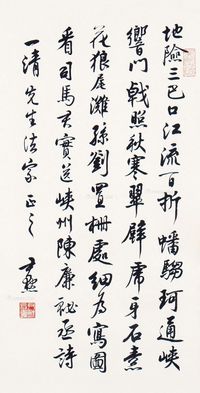 地險三巴口江流百折蟠騶珂通峽
響門戟照秋寒翠壁虎牙石素
花狼尾灘孫劉置柵處細為寫圖
看司馬君實送峽州陳廉祕丞詩
一清先生法家正之 尹默